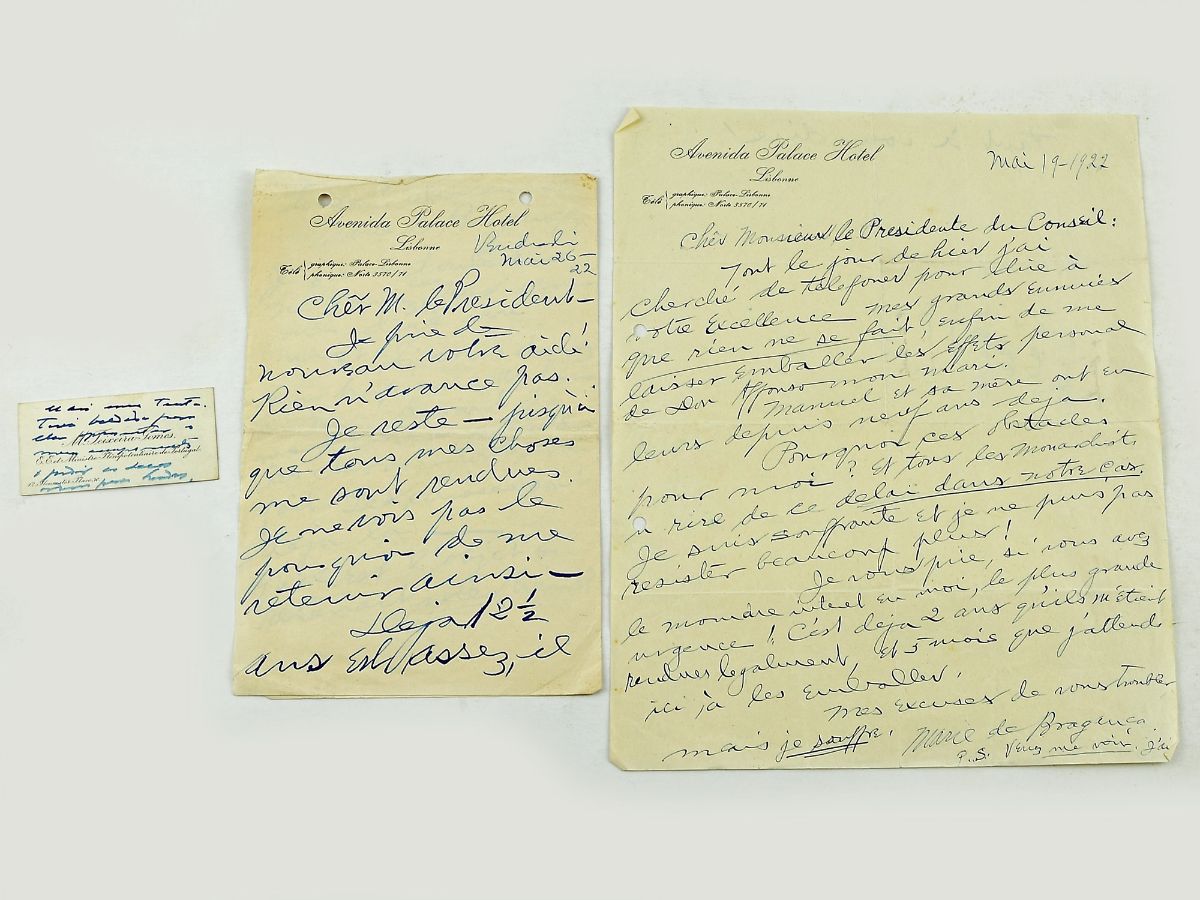 M. Teixeira-Gomes.
E. E. et Ministre Plénipotentiaire de Portugal
Avenida Palace Hotel
Lisbonne
Vendredi
Télé graphique: Palace-Lisbonne
phonique: Norte 3570/71
Mai 26-
22
Chêr M. le President-
Je prie de
nouveau votre aidé!
Rien n'avance pas.
Je reste - jusqu'à
que tous mes choses
me sont rendues.
Je ne vois pas le
pourquoi de me
retenir ainsi-
Deja 12 ½
ans Est assez, il
Avenida Palace Hotel
Lisbonne
Télé graphique: Palace-Lisbonne
phonique: Norte 3570/71
Mai 19-1922
Chêr Monsieur le Presidente du Conseil:
Tout le jour de hier j'ai
cherché de telefoner pour dire à
votre Excellence mes grands
que rien ne se fait, enfin de me
laisser emballer les effets personal
de Don Affonso mon mari.
Manuel et sa mère ont eu
leurs depuis neuf ans deja.
Pourquoi ces obstacles
pour moi? Et tous les Monarchists
rire de ce delai dans notre cas.
Je suis souffrante et je ne puis pas
resister beaucoup plus!
Je vous prie, si vous avez
le moindre en moi, le plus grande
urgence! C'est deja 2 ans qu'ils m'étaient
rendues legalment, et 5 mois que j'attends
ici à les emballer.
Mes excuses de vous troubler
mais je souffre. Marie de Bragança
P.S. Venez me voir. j'ai